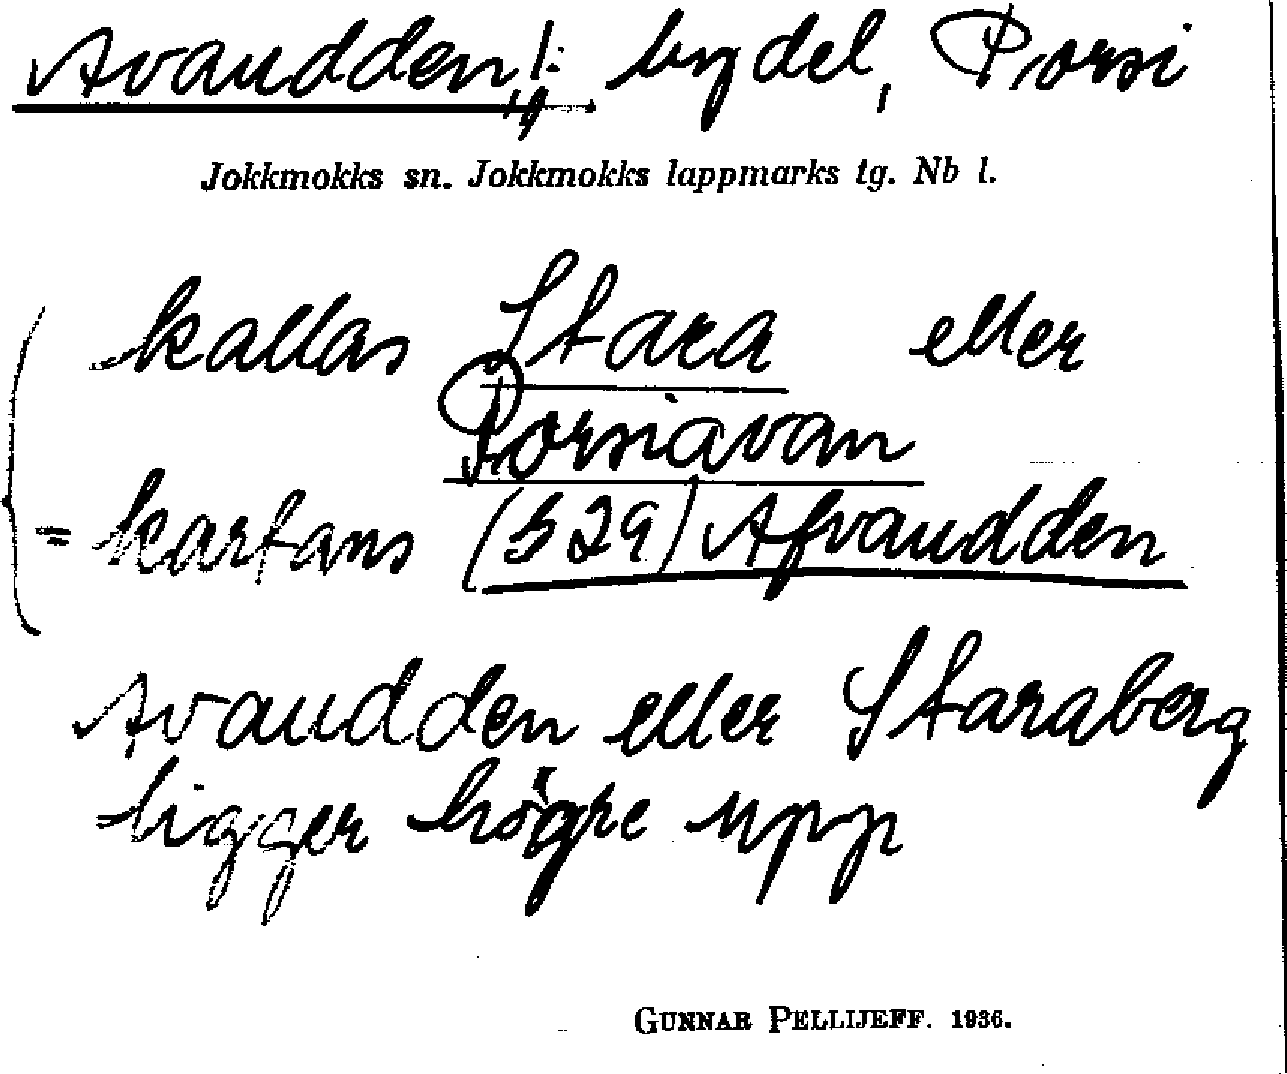 Avaudden, bydel, Porsi
Jokkmokks sn. Jokkmokks lappmarks tg. Nb l.
kallas Stara eller
Porsiavan
= kartans (529) Afvaudden
Avaudden eller Staraberg
ligger högre upp
GUNNAR PELLIJEFF. 1936.